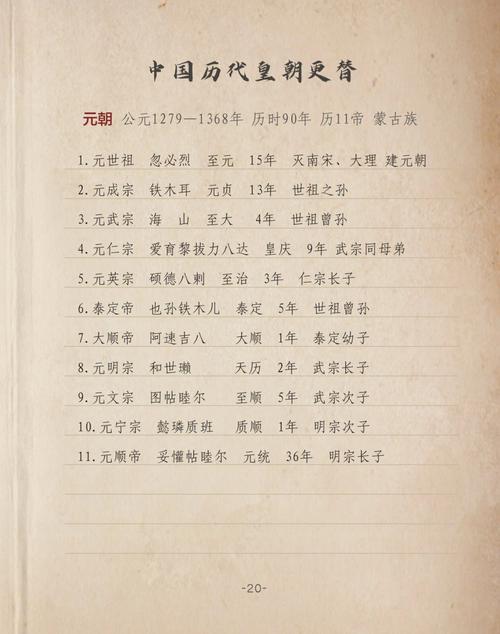 中国历代皇朝更替
元朝 公元1279—1368年 历时90年 历11帝 蒙古族
1.元世祖 忽必烈 至元 15年 灭南宋、大理 建元朝
2.元成宗 铁木耳 元贞 13年 世祖之孙
3.元武宗 海 山 至大 4年 世祖曾孙
4.元仁宗 爱育黎拔力八达 皇庆 9年 武宗同母弟
5.元英宗 硕德八剌 至治 3年 仁宗长子
6.泰定帝 也孙铁木儿 泰定 5年 世祖曾孙
7.大顺帝 阿速吉八 大顺 1年 泰定幼子
8.元明宗 和世㻋 天历 2年 武宗长子
9.元文宗 图帖睦尔 至顺 5年 武宗次子
10.元宁宗 懿璘质班 质顺 1年 明宗次子
11.元顺帝 妥懽帖睦尔 元统 36年 明宗长子
-20-